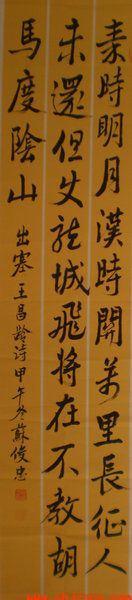 秦時明月漢時關萬里長征人
未還但使龍城飛將在不教胡
馬度陰山
出塞王昌齡詩甲午冬蘇俊忠